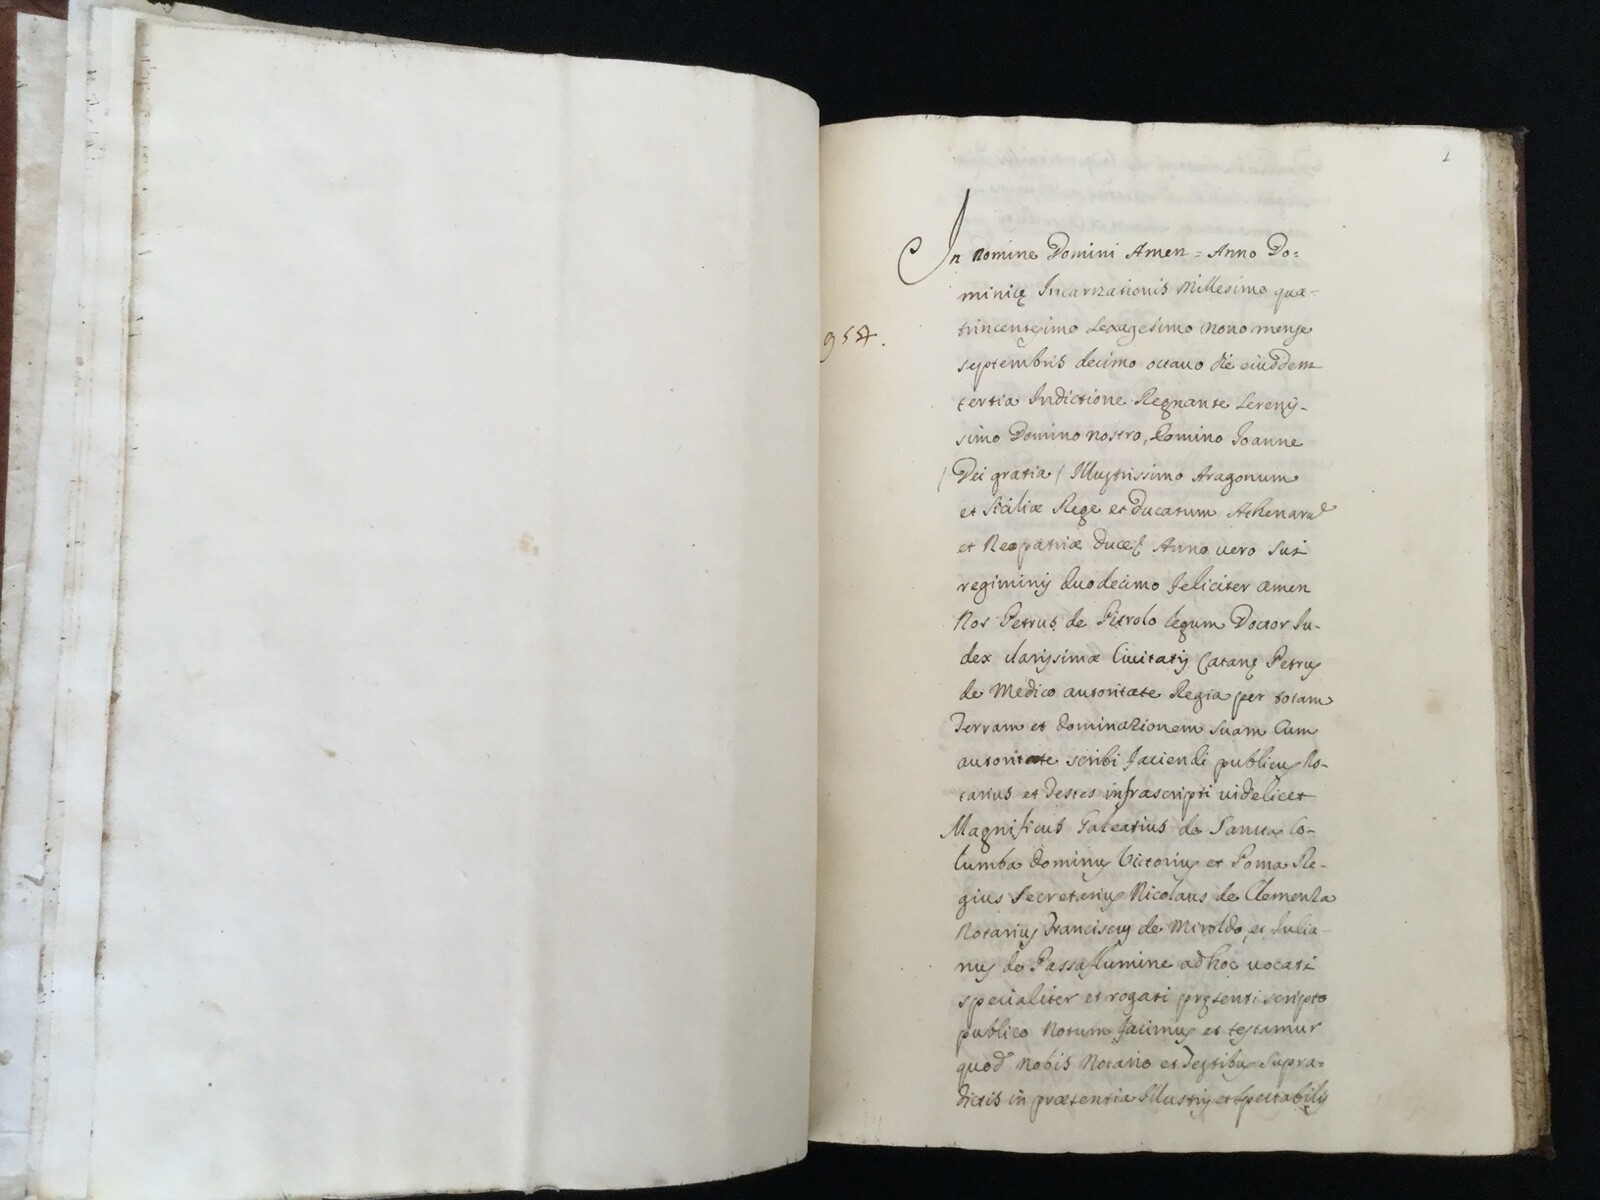 1
In nomine Domini Amen = Anno Do=
minicę Incarnationis Millesimo qua=
trincentesimo sexagesimo nono mense
septembris decimo octavo die eiusdem
tertia Indictione Regnante Sereniss-
simo Domino nostro, Domino Joanne
(Dei gratia) Illustrissimo Aragonum
et Siciliæ Rege et Ducatum Athenarū
et Neopatriæ Duce Anno vero sui
regiminis duodecimo feliciter amen
Nos Petrus de Pitrolo legum Doctor Iu-
dex clarissimæ Civitatis Catanę Petrus
de Medico autoritate Regia per totam
Terram et dominationem suam cum
autoritate scribi faciendi publicus No-
tarius et Testes infrascripti videlicet
Magnificus Galeatius de Sancta Co-
lumba dominus Victorius et Poma Re-
gius Secretarius Nicolaus de Clementa
Notarius Franciscus de Miroldo, et Iulia-
nus de Passaflumine ad hoc vocati
specialiter et rogati pręsenti scripto
publico notum facimus et testamur
quod nobis Notario et Testibus supra=
dictis in præsentia Illustris et Spectabilis